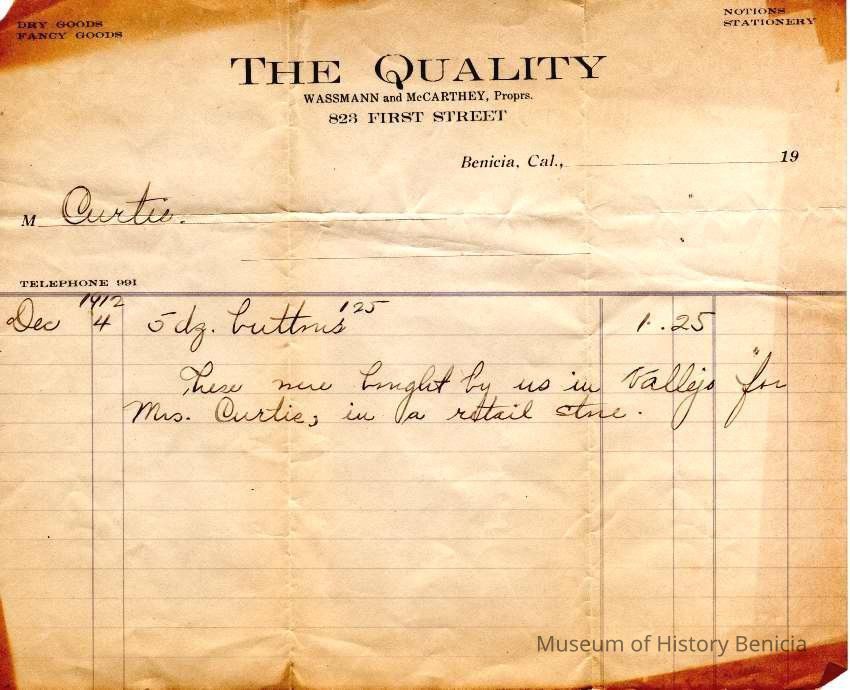 DRY GOODS
FANCY GOODS
NOTIONS
STATIONERY
THE QUALITY
WASSMANN and McCARTHEY, Proprs.
823 FIRST STREET
Benicia, Cal., 19
M Curtis.
TELEPHONE 991
1912
Dec 4 5 dz. buttons 125 1.25
These were bought by us in Vallejo "for
Mrs. Curtis, in a retail store.
Museum of History Benicia